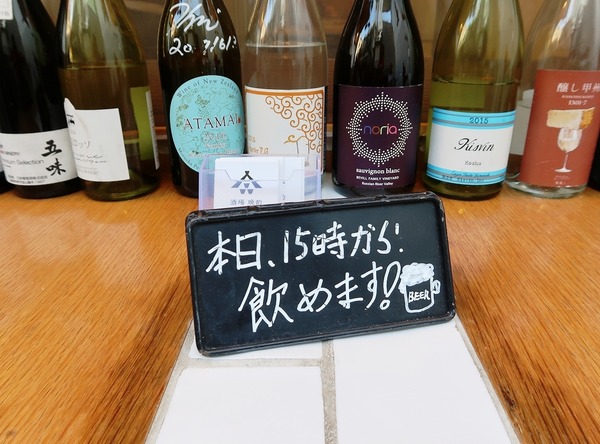 五味
Wine of New Zealand
ATAMAI
noria
sauvignon blanc
BEVILL FAMILY VINEYARD
Russian River Valley
2015
Kisvin
Koshu
醸し甲州
酒場 晩酌
本日、15時から!
飲めます!
BEER